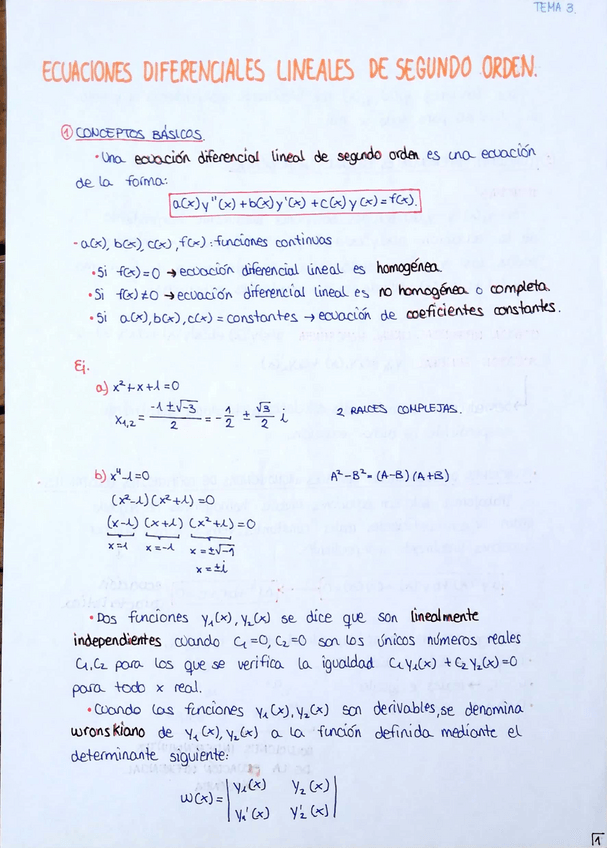 TEMA 3.
ECUACIONES DIFERENCIALES LINEALES DE SEGUNDO ORDEN.
① CONCEPTOS BÁSICOS.
• Una ecuación diferencial lineal de segundo orden es una ecuación
de la forma:
a(x)y''(x)+b(x)y'(x)+c(x)y(x)=f(x).
- a(x), b(x), c(x), f(x): funciones continuas
• Si f(x)=0 → ecuación diferencial lineal es homogénea.
• Si f(x)≠0 → ecuación diferencial lineal es no homogénea o completa.
• Si a(x), b(x), c(x) = constantes → ecuación de coeficientes constantes.
Ej.
a) x²+x+1=0
x₁,₂ = (-1±√-3)/2 = -1/2 ± √3/2 i 2 RAICES COMPLEJAS.
b) x⁴-1=0 A²-B²=(A-B)(A+B)
(x²-1)(x²+1)=0
(x-1)(x+1)(x²+1)=0
x=1 x=-1 x=±√-1
x=±i
• Dos funciones y₁(x), y₂(x) se dice que son linealmente
independientes cuando C₁=0, C₂=0 son los únicos números reales
C₁,C₂ para los que se verifica la igualdad C₁y₁(x)+C₂y₂(x)=0
para todo x real.
• Cuando las funciones y₁(x), y₂(x) son derivables, se denomina
wronskiano de y₁(x), y₂(x) a la función definida mediante el
determinante siguiente:
W(x)=|y₁(x) y₂(x)|
|y₁'(x) y₂'(x)|
1